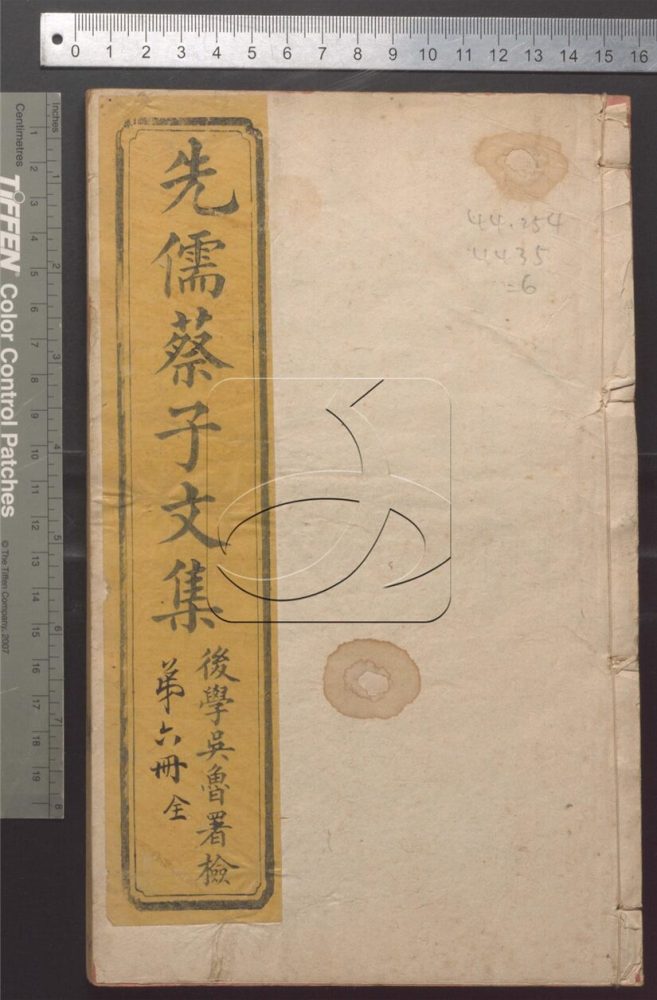 0 1 2 3 4 5 6 7 8 9 10 11 12 13 14 15 16
先儒蔡子文集
後學吳魯署檢
苐六冊 全
44.254
4435
=6
Inches
1 2 3 4 5 6 7 8
Centimetres
1 2 3 4 5 6 7 8 9 10 11 12 13 14 15 16 17 18 19
TIFFEN Color Control Patches
© The Tiffen Company, 2007